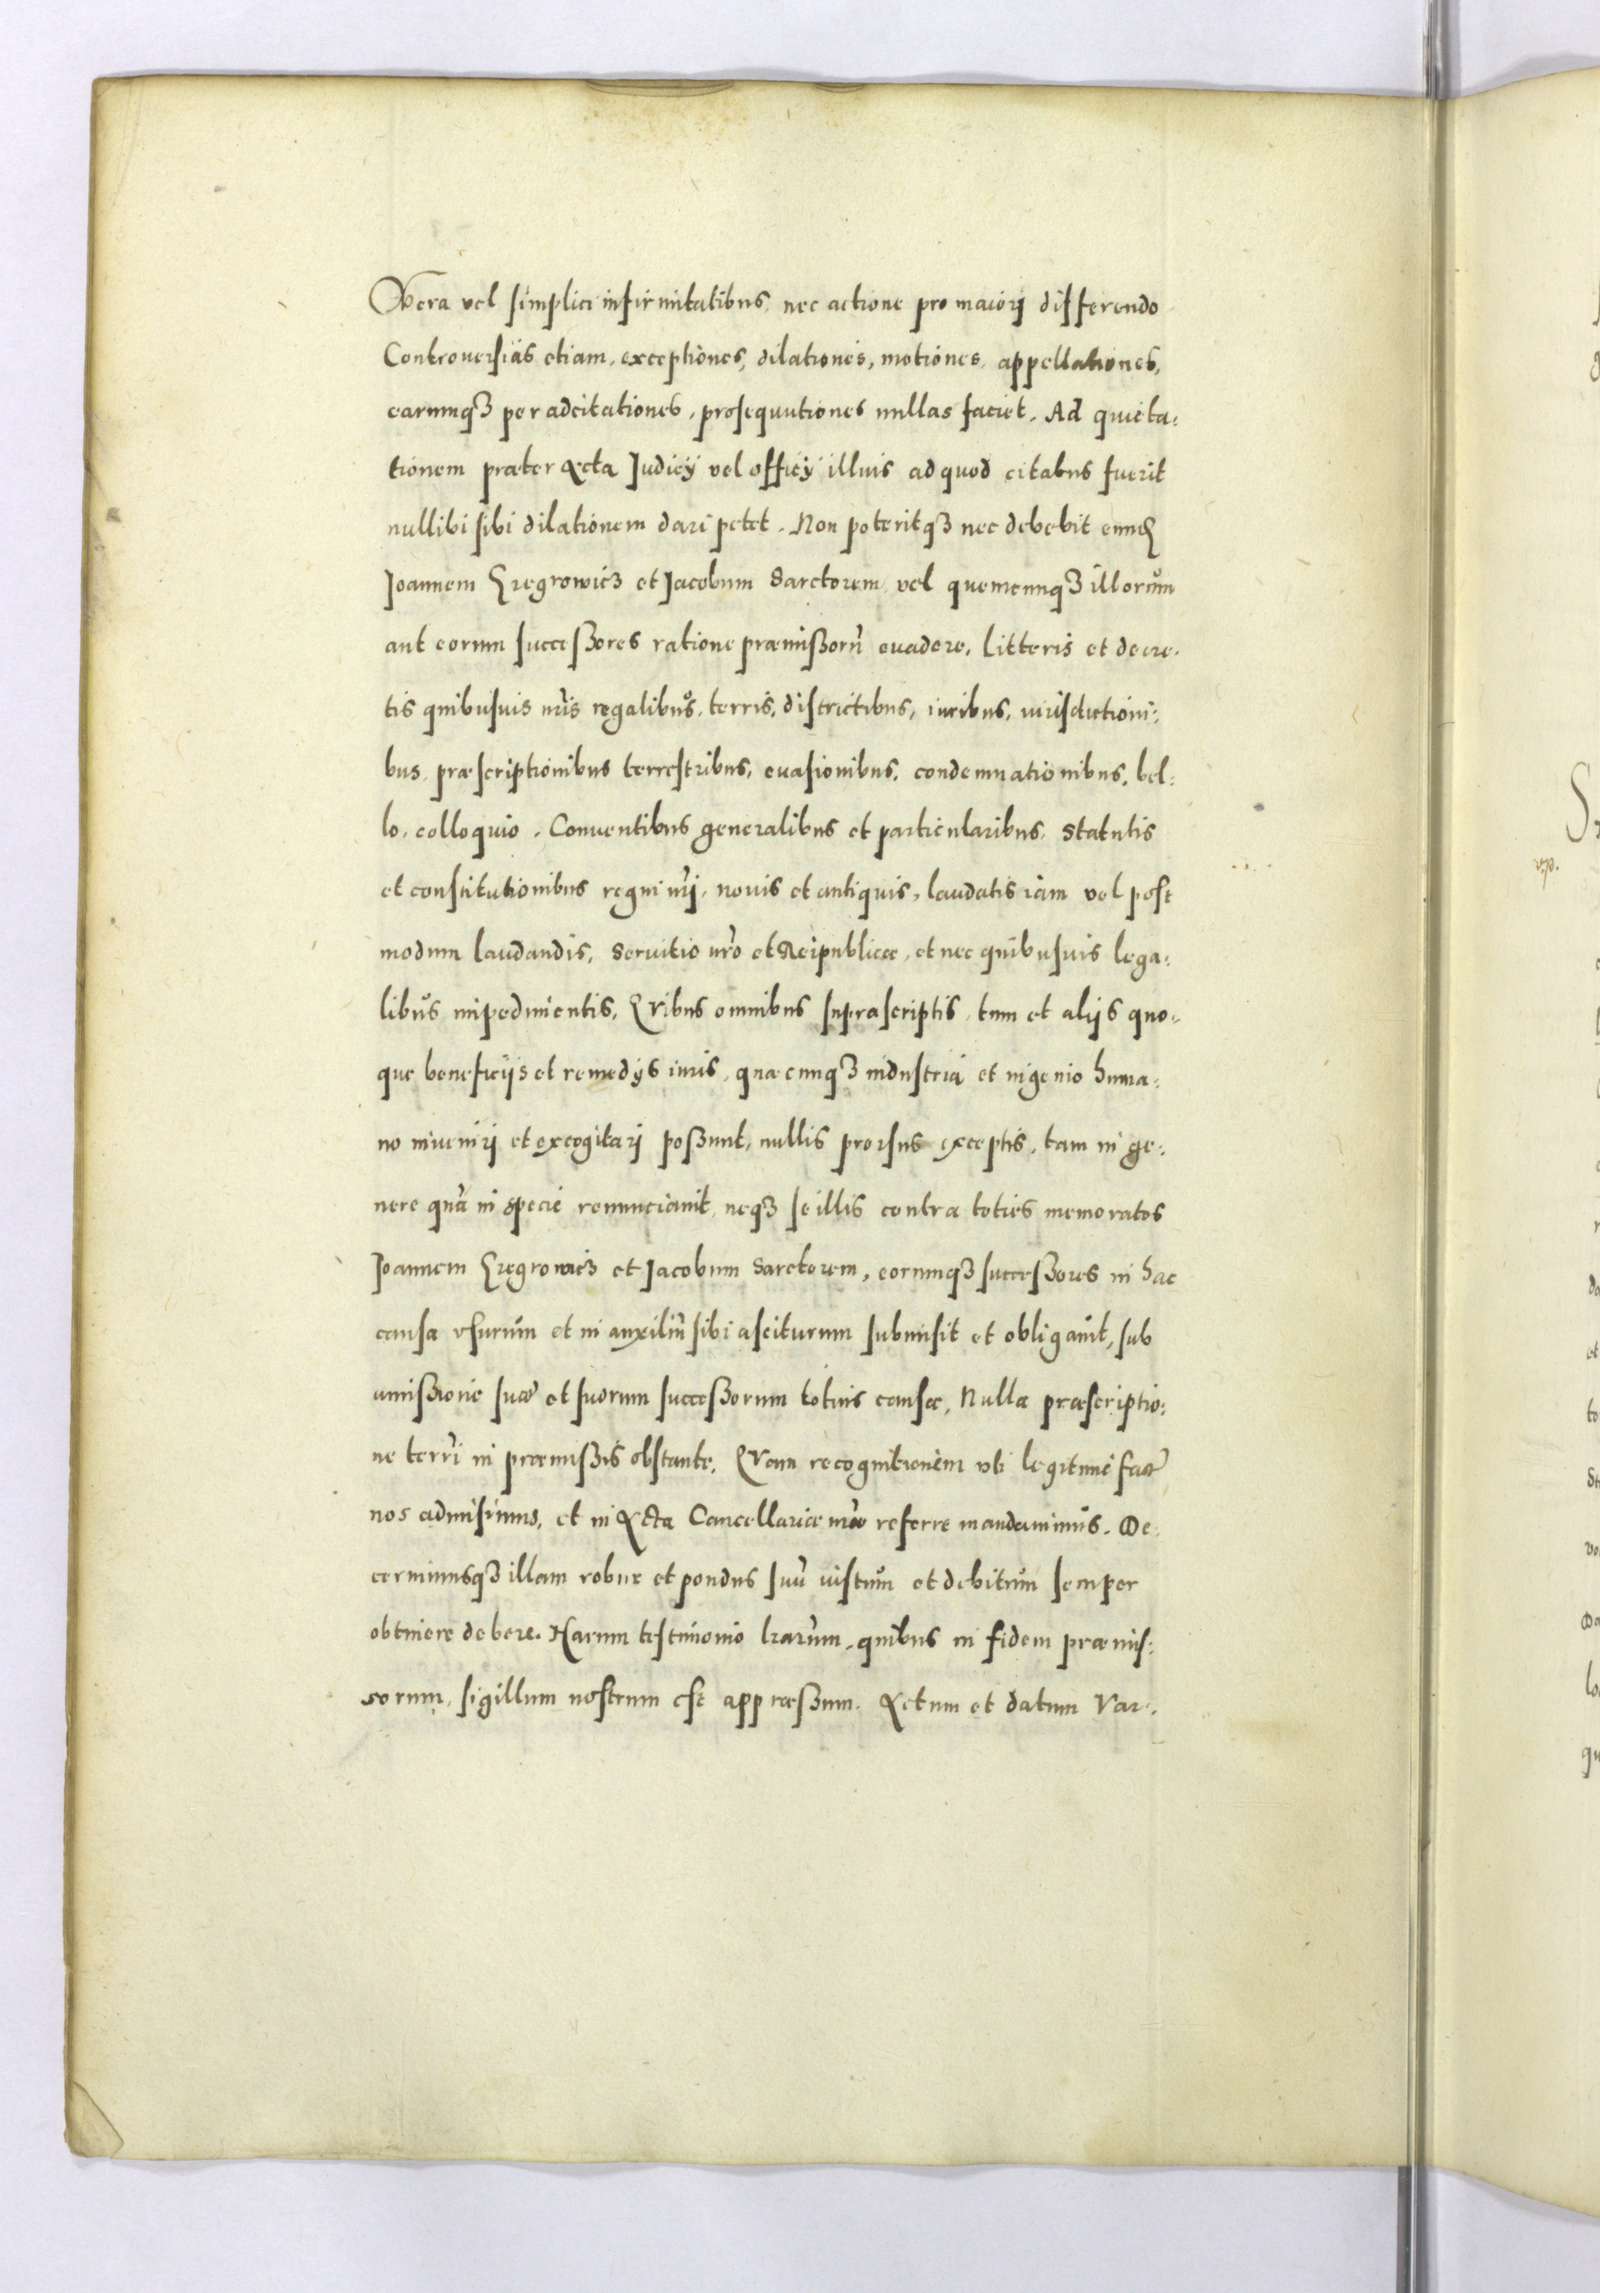 Vera vel simplici infirmitatibus, nec actione pro maiorj differendo
Controuersias etiam, exceptiones, dilationes, motiones, appellationes,
earumqʒ per adcitationes, prosequutiones nullas faciet. Ad quieta-
tionem præter Acta Judicÿ vel officÿ illius ad quod citatus fuerit
nullibi sibi dilationem dari petet. Non poteritqʒ nec debebit eund
Joannem Gregrowicʒ et Jacobum Sarctorem vel quemcunqʒ illorum
aut eorum successores ratione præmissorũ euadere, litteris et decre-
tis quibusuis nr̃is regalibus, terris, districtibus, iuribus, iurisdictioni:
bus, præscriptionibus terrestribus, euasionibus, condemnationibus, bel:
lo, colloquio, Conuentibus generalibus et particularibus, statutis
et constitutionibus regni nr̃j, nouis et antiquis, laudatis iam vel post
modum laudandis, seruitio nr̃o et Reipublicæ, et nec quibusuis lega:
libus impedimentis, Qribus omnibus suprascriptis, tum et alijs quo-
que beneficijs et remedÿs iuris, quæcunqʒ industria et ingenio huma:
no inuenirj et excogitarj possunt, nullis prorsus exceptis, tam in ge:
nere quã in specie renunciauit, neqʒ se illis contra toties memoratos
Joannem Gregrowicʒ et Jacobum Sarctorem, eorumqʒ successores in hac
causa vsurum et in auxiliũ sibi asciturum submisit et obligauit, sub
amissione suæ et suorum successorum totius causæ, Nulla præscriptio:
ne terr̃i in præmissis obstante. Qvam recognitionem vti legitime fact
nos admisimus, et in Acta Cancellariæ nr̃æ referre mandauimus. De-
cernimusqʒ illam robur et pondus suũ iustum et debitum semper
obtinere debere. Harum testimonio lr̃arum, quibus in fidem præmis:
sorum, sigillum nostrum est appressum. Actum et datum Var-